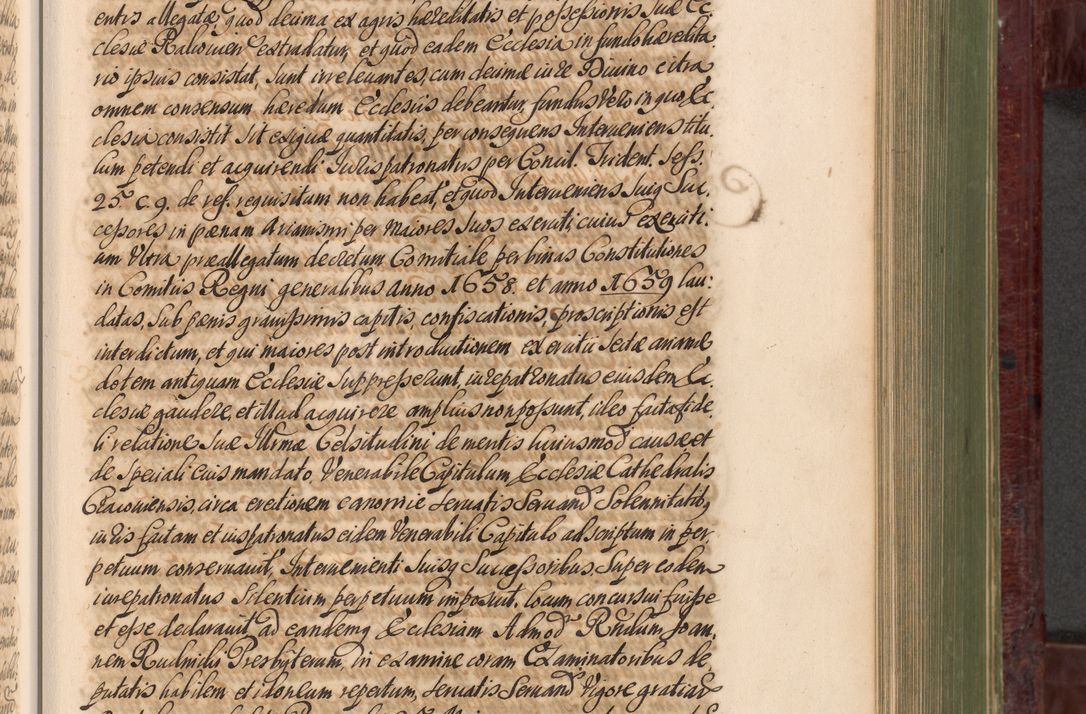 entis allegatæ, quod decima ex agris hæreditatis et possessionis suæ Ec
clesiæ Rahovien extradatur, et quod eadem Ecclesia in fundo hæredita
rio ipsius consistat, sunt irreleuantes, cum decimæ iure Divino citra
omnem consensum hæredum Ecclesiis debeantur, fundus vero in quo Ec
clesia consistit sit exiguæ quantitatis, per consequens Interveniens titu
lum petendi et acquirendi Iurispatronatus per Concil. Trident. sess.
25 c. 9. de ref. requisitum non habeat, et quod Interveniens suiq Suc
cessores in pænam Arianismi per maiores suos exerciti, cuius exerciti
um ultra præallegatum decretum Comitiale per binas Constitutiones
in Comitiis Regni generalibus anno 1658. et anno 1659 lau:
datas, sub pænis gravissimis capitis, confiscationis, proscriptionis est
interdictum, et qui maiores post introductionem exercitii sectæ arianæ
dotem antiquam Ecclesiæ suppresserunt, iurepatronatus eiusdem Ec
clesiæ gaudere, et illud acquirere amplius non possunt, ideo facta fide
li relatione suæ Illrmæ Celsitudini de mentis huiusmod causæ et
de speciali eius mandato Venerabile Capitulum Ecclesiæ Cathedralis
Cracoviensis, circa erectionem canonice servatis servand solennitatibq
iuris factam et iuspatronatus eidem Venerabili Capitulo adscriptum in per
petuum conservavit, Intervenienti suisq Successoribus, super eodem
iurepatronatus silentium perpetuum imposuit. locum concursui fuisse
et esse declaravit, ad eandemq Ecclesiam Admod Rndum Joan
nem Rudnicki Presbyterum, in examine coram Examinatoribus de
putatis habilem et idoneum repertum, servatis servand vigore gratiar